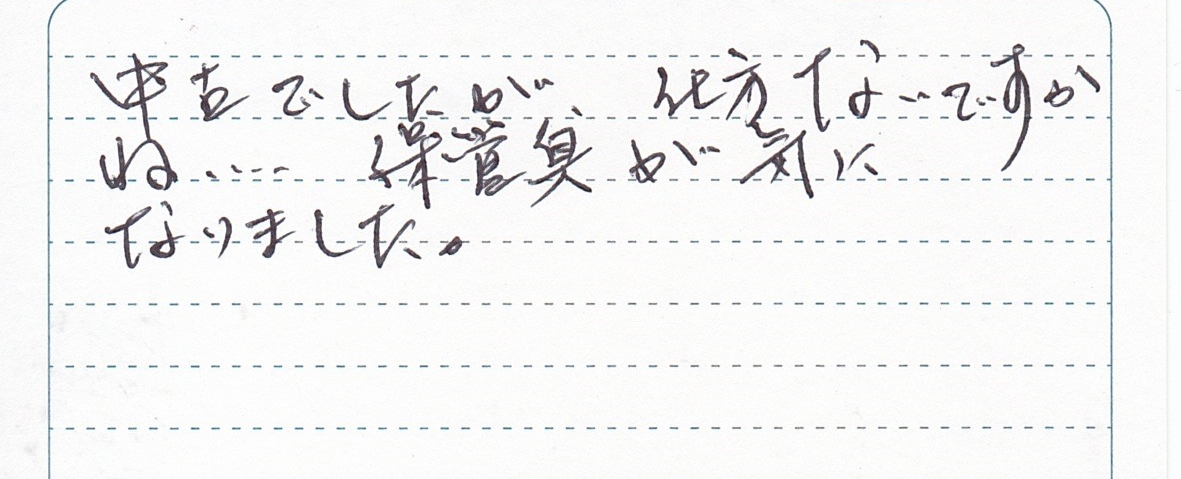 中古でしたが、仕方ないですか
ね‥‥ 保管臭が気に
なりました。